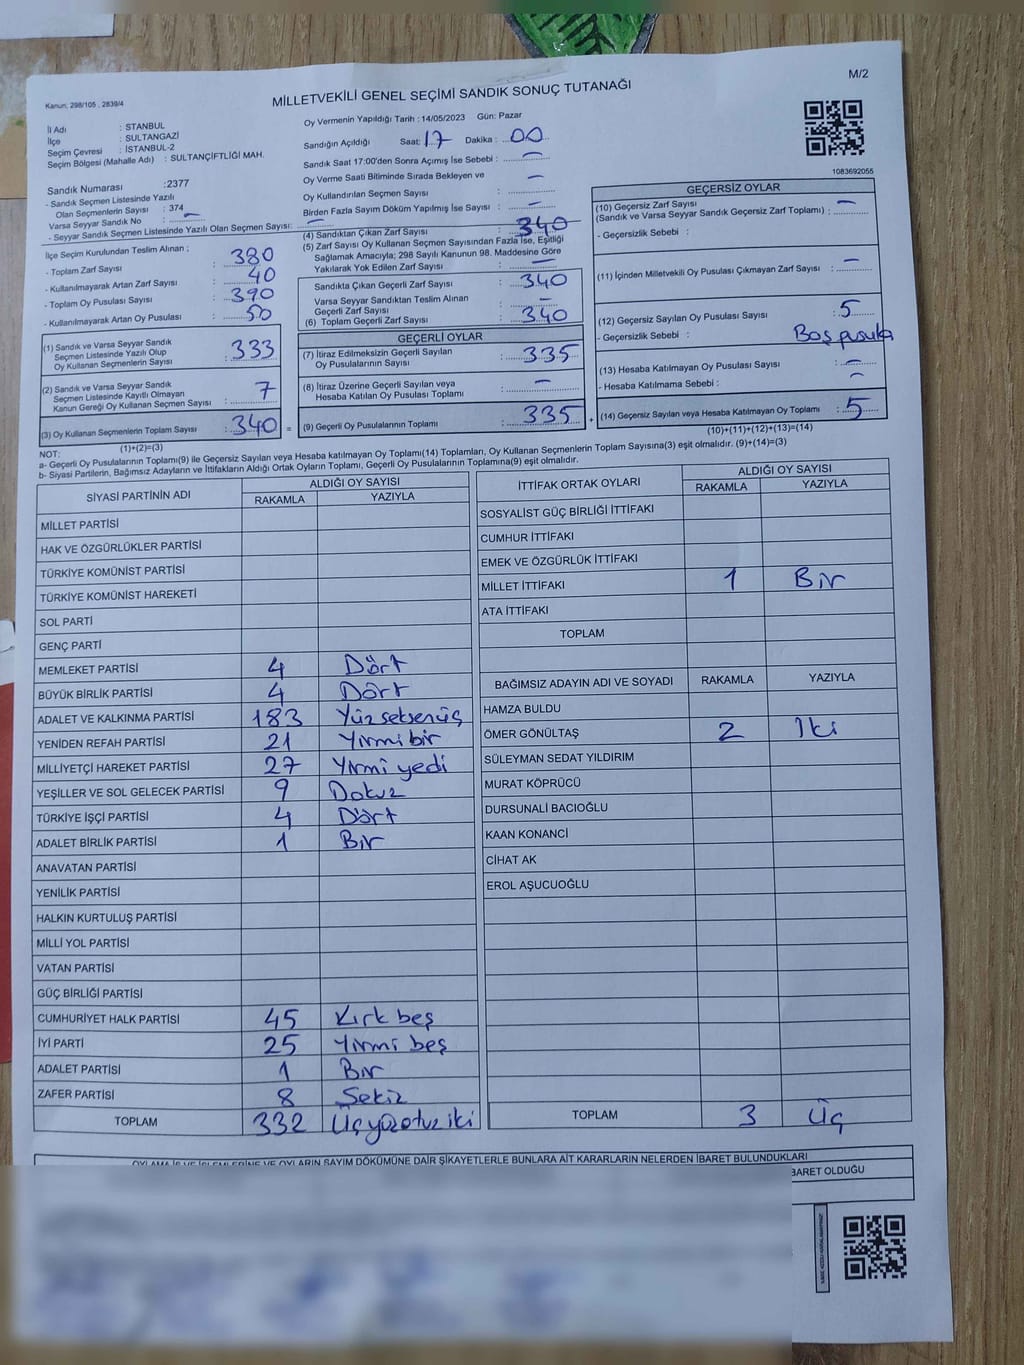 M/2
Kanun, 298/105 , 2839/4
MİLLETVEKİLİ GENEL SEÇİMİ SANDIK SONUÇ TUTANAĞI
İl Adı : STANBUL
İlçe : SULTANGAZİ
Seçim Çevresi : İSTANBUL-2
Seçim Bölgesi (Mahalle Adı) : SULTANÇİFTLİĞİ MAH.
Sandık Numarası :2377
- Sandık Seçmen Listesinde Yazılı
Olan Seçmenlerin Sayısı : 374
Varsa Seyyar Sandık No : –
- Seyyar Sandık Seçmen Listesinde Yazılı Olan Seçmen Sayısı: –
Oy Vermenin Yapıldığı Tarih : 14/05/2023 Gün: Pazar
Sandığın Açıldığı Saat: 17 Dakika : 00
Sandık Saat 17:00'den Sonra Açımış İse Sebebi : –
Oy Verme Saati Bitiminde Sırada Bekleyen ve
Oy Kullandırılan Seçmen Sayısı : –
Birden Fazla Sayım Döküm Yapılmış İse Sayısı : –
1083692055
İlçe Seçim Kurulundan Teslim Alınan ;
- Toplam Zarf Sayısı : 380
- Kullanılmayarak Artan Zarf Sayısı : 40
- Toplam Oy Pusulası Sayısı : 390
- Kullanılmayarak Artan Oy Pusulası : 50
(1) Sandık ve Varsa Seyyar Sandık
Seçmen Listesinde Yazılı Olup
Oy Kullanan Seçmenlerin Sayısı : 333
(2) Sandık ve Varsa Seyyar Sandık
Seçmen Listesinde Kayıtlı Olmayan
Kanun Gereği Oy Kullanan Seçmen Sayısı : 7
(3) Oy Kullanan Seçmenlerin Toplam Sayısı : 340 =
(1)+(2)=(3)
(4) Sandıktan Çıkan Zarf Sayısı : 340
(5) Zarf Sayısı Oy Kullanan Seçmen Sayısından Fazla İse, Eşitliği
Sağlamak Amacıyla; 298 Sayılı Kanunun 98. Maddesine Göre
Yakılarak Yok Edilen Zarf Sayısı : –
Sandıkta Çıkan Geçerli Zarf Sayısı : 340
Varsa Seyyar Sandıktan Teslim Alınan
Geçerli Zarf Sayısı : –
(6) Toplam Geçerli Zarf Sayısı : 340
GEÇERLİ OYLAR
(7) İtiraz Edilmeksizin Geçerli Sayılan
Oy Pusulalarının Sayısı : 335
(8) İtiraz Üzerine Geçerli Sayılan veya
Hesaba Katılan Oy Pusulası Toplamı : –
(9) Geçerli Oy Pusulalarının Toplamı : 335 +
GEÇERSİZ OYLAR
(10) Geçersiz Zarf Sayısı
(Sandık ve Varsa Seyyar Sandık Geçersiz Zarf Toplamı) : –
- Geçersizlik Sebebi :
(11) İçinden Milletvekili Oy Pusulası Çıkmayan Zarf Sayısı : –
(12) Geçersiz Sayılan Oy Pusulası Sayısı : 5
- Geçersizlik Sebebi : Boş pusula
(13) Hesaba Katılmayan Oy Pusulası Sayısı : –
- Hesaba Katılmama Sebebi : –
(14) Geçersiz Sayılan veya Hesaba Katılmayan Oy Toplamı : 5
(10)+(11)+(12)+(13)=(14)
NOT:
a- Geçerli Oy Pusulalarının Toplamı(9) ile Geçersiz Sayılan veya Hesaba katılmayan Oy Toplamı(14) Toplamları, Oy Kullanan Seçmenlerin Toplam Sayısına(3) eşit olmalıdır. (9)+(14)=(3)
b- Siyasi Partilerin, Bağımsız Adayların ve İttifakların Aldığı Ortak Oyların Toplamı, Geçerli Oy Pusulalarının Toplamına(9) eşit olmalıdır.
SİYASİ PARTİNİN ADI ALDIĞI OY SAYISI
RAKAMLA YAZIYLA
MİLLET PARTİSİ
HAK VE ÖZGÜRLÜKLER PARTİSİ
TÜRKİYE KOMÜNİST PARTİSİ
TÜRKİYE KOMÜNİST HAREKETİ
SOL PARTİ
GENÇ PARTİ
MEMLEKET PARTİSİ 4 Dört
BÜYÜK BİRLİK PARTİSİ 4 Dört
ADALET VE KALKINMA PARTİSİ 183 Yüz seksenüç
YENİDEN REFAH PARTİSİ 21 Yirmi bir
MİLLİYETÇİ HAREKET PARTİSİ 27 Yirmi yedi
YEŞİLLER VE SOL GELECEK PARTİSİ 9 Dokuz
TÜRKİYE İŞÇİ PARTİSİ 4 Dört
ADALET BİRLİK PARTİSİ 1 Bir
ANAVATAN PARTİSİ
YENİLİK PARTİSİ
HALKIN KURTULUŞ PARTİSİ
MİLLİ YOL PARTİSİ
VATAN PARTİSİ
GÜÇ BİRLİĞİ PARTİSİ
CUMHURİYET HALK PARTİSİ 45 Kırk beş
İYİ PARTİ 25 Yirmi beş
ADALET PARTİSİ 1 Bir
ZAFER PARTİSİ 8 Sekiz
TOPLAM 332 Üçyüzotuz iki
İTTİFAK ORTAK OYLARI ALDIĞI OY SAYISI
RAKAMLA YAZIYLA
SOSYALİST GÜÇ BİRLİĞİ İTTİFAKI
CUMHUR İTTİFAKI
EMEK VE ÖZGÜRLÜK İTTİFAKI
MİLLET İTTİFAKI 1 Bir
ATA İTTİFAKI
TOPLAM
BAĞIMSIZ ADAYIN ADI VE SOYADI RAKAMLA YAZIYLA
HAMZA BULDU
ÖMER GÖNÜLTAŞ 2 İki
SÜLEYMAN SEDAT YILDIRIM
MURAT KÖPRÜCÜ
DURSUNALİ BACIOĞLU
KAAN KONANCİ
CİHAT AK
EROL AŞUCUOĞLU
TOPLAM 3 Üç
OYLAMA İŞ VE İŞLEMLERİNE VE OYLARIN SAYIM DÖKÜMÜNE DAİR ŞİKAYETLERLE BUNLARA AİT KARARLARIN NELERDEN İBARET BULUNDUKLARI
BARET OLDUĞU